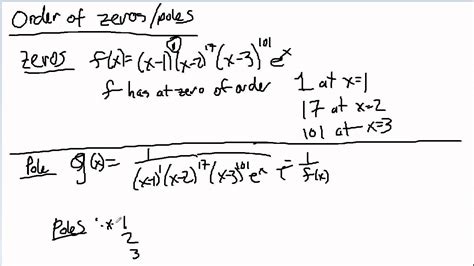 Order of zeros/poles
zeros f(x)=(x-1)^1(x-2)^17(x-3)^101 e^x
f has at zero of order 1 at x=1
17 at x=2
101 at x=3
Pole g(x)= 1/((x-1)^1(x-2)^17(x-3)^101 e^x) = 1/f(x)
Poles : x 1
2
3